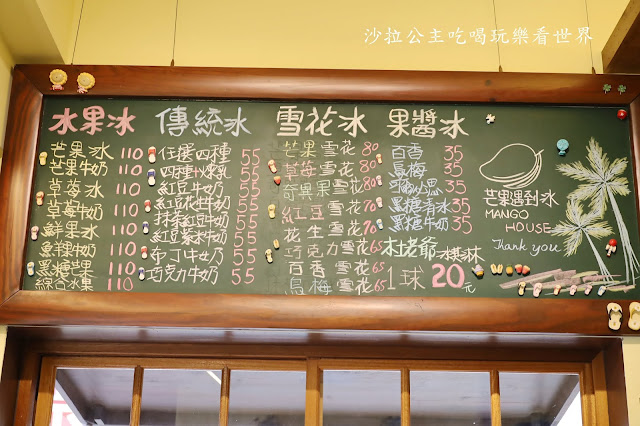 沙拉公主吃喝玩樂看世界
水果冰
芒果冰 110
芒果牛奶 110
草莓冰 110
草莓牛奶 110
鮮果冰 110
鮮果牛奶 110
黑糖芒果 110
綜合水果 110
傳統冰
任選四種 55
四種煉乳 55
紅豆牛奶 55
紅豆花生牛奶 55
抹茶紅豆牛奶 55
紅豆粉粿牛奶 55
布丁牛奶 55
巧克力牛奶 55
雪花冰
芒果雪花 80
草莓雪花 80
奇異果雪花 80
紅豆雪花 70
花生雪花 70
巧克力雪花 65
百香雪花 65
烏梅雪花 65
果醬冰
百香 35
烏梅 35
35
黑糖清冰 35
黑糖牛奶 35
杜老爺冰淇淋
1球 20元
芒果遇到冰
MANGO
HOUSE
Thank you